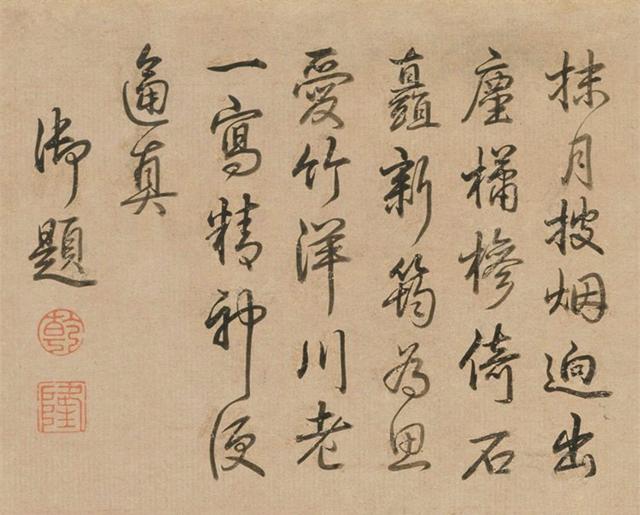 抹月披烟迥出
塵橚槮倚石
矗新筠為思
愛竹洋川老
一寫精神便
逼真
御題
乾
隆